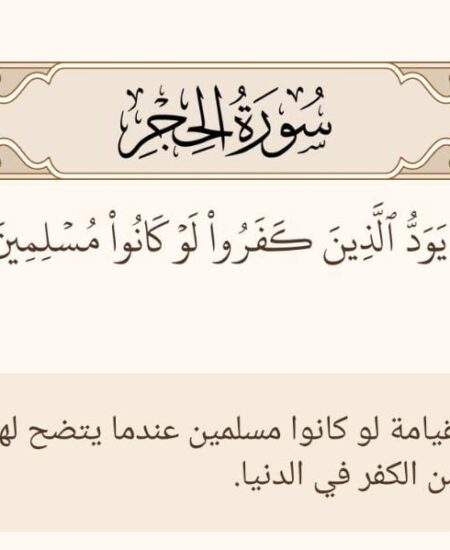 سُورَةُ الحِجْرِ
يَوَدُّ ٱلَّذِينَ كَفَرُوا۟ لَوْ كَانُوا۟ مُسْلِمِينَ
لقيامة لو كانوا مسلمين عندما يتضح له
ن الكفر في الدنيا.